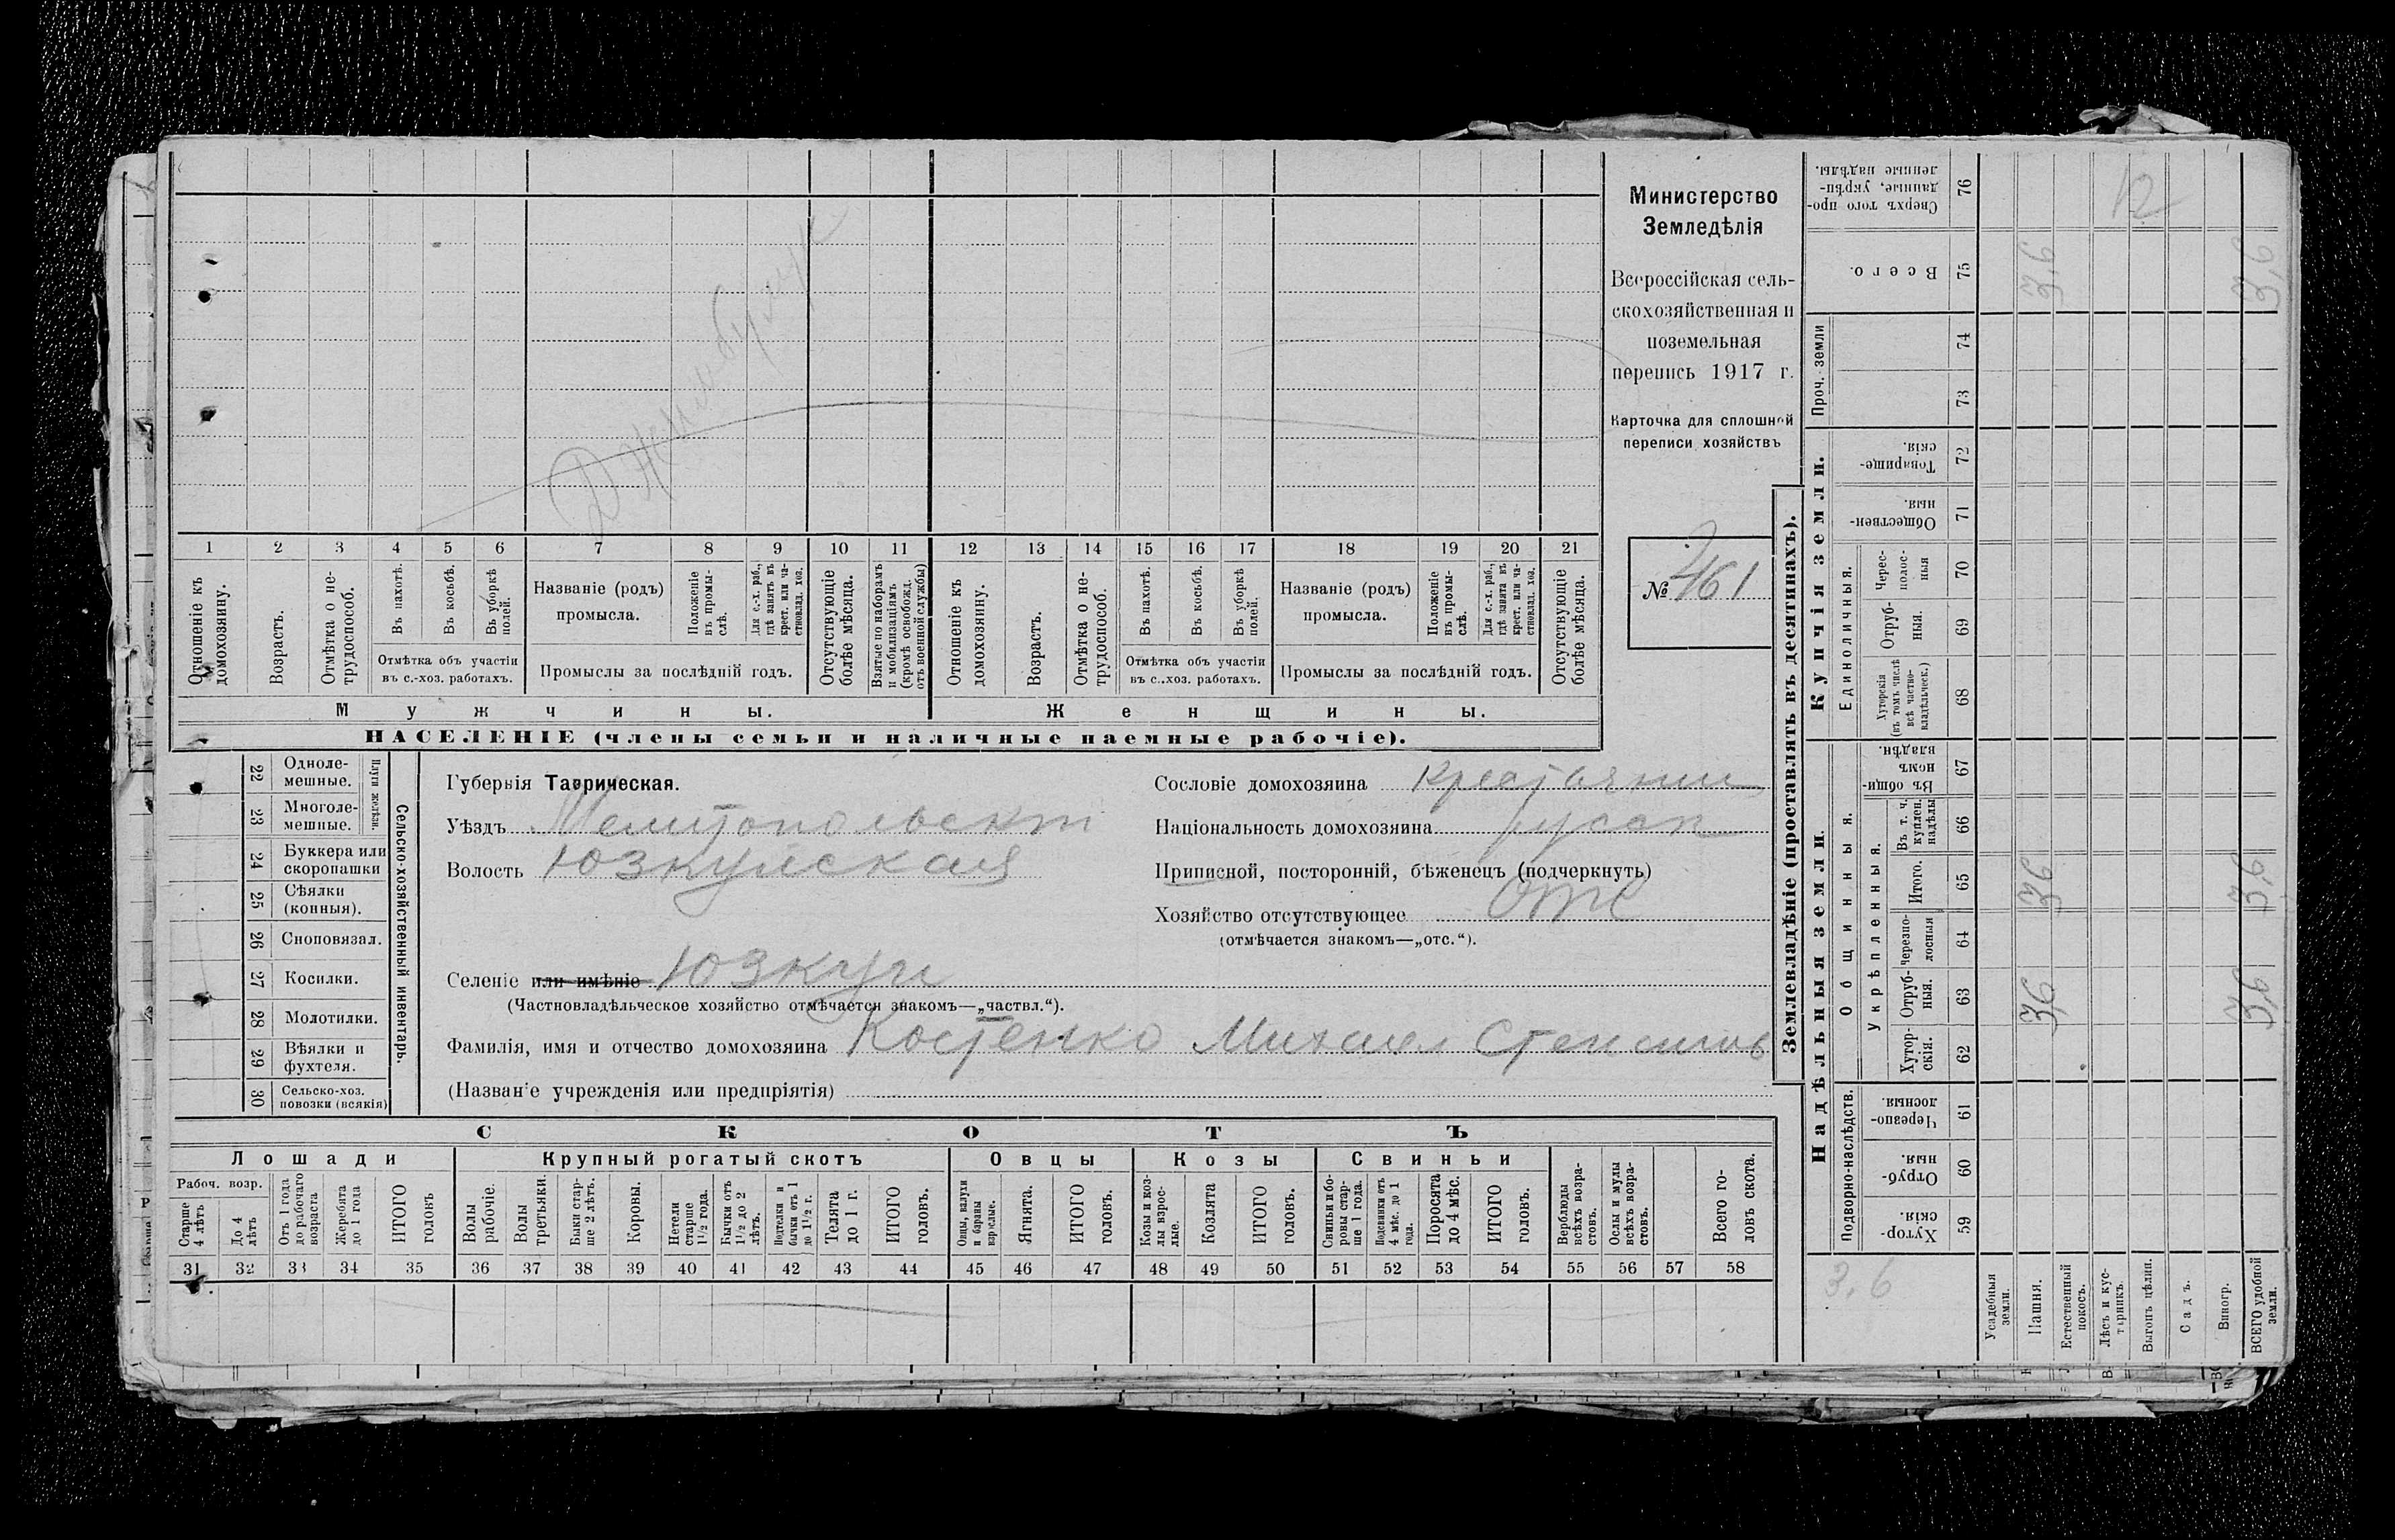 Министерство
Земледѣлія
Всероссійская сель-
скохозяйственная и
поземельная
перепись 1917 г.
Карточка для сплошной
переписи хозяйствъ
№ 461
1 2 3 4 5 6 7 8 9 10 11 12 13 14 15 16 17 18 19 20 21
Отношеніе къ домохозяину.
Возрастъ.
Отмѣтка о не-трудоспособ.
Въ пахотѣ.
Въ косьбѣ.
Въ уборкѣ полей.
Отмѣтка объ участіи
въ с.-хоз. работахъ.
Названіе (родъ)
промысла.
Положеніе въ промы-слѣ.
Для с.-х. раб., гдѣ занятъ въ крест. или ча-стновлад. хоз.
Промыслы за послѣдній годъ.
Отсутствующіе болѣе мѣсяца.
Взятые по наборамъ и мобилизаціямъ (кромѣ освобожд. отъ военной службы)
Отношеніе къ домохозяину.
Возрастъ.
Отмѣтка о не-трудоспособ.
Въ пахотѣ.
Въ косьбѣ.
Въ уборкѣ полей.
Отмѣтка объ участіи
въ с.-хоз. работахъ.
Названіе (родъ)
промысла.
Положеніе въ промы-слѣ.
Для с.-х. раб., гдѣ занята въ крест. или ча-стновлад. хоз.
Промыслы за послѣдній годъ.
Отсутствующіе болѣе мѣсяца.
Мужчины.
Женщины.
НАСЕЛЕНІЕ (члены семьи и наличные наемные рабочіе).
Сельско-хозяйственный инвентарь.
Плуги желѣзн.
22 Одноле-мешные.
23 Многоле-мешные.
24 Буккера или скоропашки
25 Сѣялки (конныя).
26 Сноповязал.
27 Косилки.
28 Молотилки.
29 Вѣялки и фухтеля.
30 Сельско-хоз. повозки (всякія)
Губернія Таврическая.
Уѣздъ Мелитопольскій
Волость Юзкуйская
Селеніе или имѣніе Юзкуи
(Частновладѣльческое хозяйство отмѣчается знакомъ—„частвл.“).
Фамилія, имя и отчество домохозяина Костенко Михаил Степанов
(Названіе учрежденія или предпріятія)
Сословіе домохозяина Крестьянин
Національность домохозяина русск
Приписной, посторонній, бѣженецъ (подчеркнуть)
Хозяйство отсутствующее отс
(отмѣчается знакомъ—„отс.“).
СКОТЪ
Лошади
Крупный рогатый скотъ
Овцы
Козы
Свиньи
Рабоч. возр.
Старше 4 лѣтъ
До 4 лѣтъ
Отъ 1 года до рабочаго возраста
Жеребята до 1 года
ИТОГО головъ
Волы рабочіе.
Волы третьяки.
Быки стар-ше 2 лѣтъ.
Коровы.
Нетели старше 1½ года.
Бычки отъ 1½ до 2 лѣтъ.
Подтелки и бычки отъ 1 до 1½ г.
Телята до 1 г.
ИТОГО головъ.
Овцы, валухи и бараны взрослые.
Ягнята.
ИТОГО головъ.
Козы и коз-лы взрос-лые.
Козлята
ИТОГО головъ.
Свиньи и бо-ровы стар-ше 1 года.
Подсвинки отъ 4 мѣс. до 1 года.
Поросята до 4 мѣс.
ИТОГО головъ.
Верблюды всѣхъ возра-стовъ.
Ослы и мулы всѣхъ возра-стовъ.
Всего го-ловъ скота.
31 32 33 34 35 36 37 38 39 40 41 42 43 44 45 46 47 48 49 50 51 52 53 54 55 56 57 58
Землевладѣніе (проставлять въ десятинахъ).
Надѣльныя земли.
Купчія земли.
Проч. земли
Подворно-наслѣдств.
Общинныя.
Укрѣпленныя.
Единоличныя.
Хутор-скія. 59
Отруб-ныя. 60
Черезпо-лосныя. 61
Хутор-скія. 62
Отруб-ныя. 63
Черезпо-лосныя 64
Итого. 65
Въ т. ч. куплен. надѣлы 66
Въ общи-номъ владѣн. 67
Хуторскія (въ томъ числѣ всѣ частно-владѣльческ.) 68
Отруб-ныя. 69
Черес-полос-ныя 70
Обществен-ныя. 71
Товарище-скія. 72
73
74
Всего. 75
Сверхъ того про-данные, укрѣп-ленные надѣлы. 76
Усадебныя земли.
Пашня. 3,6 3,6 3,6
Естественный покосъ.
Лѣсъ и кус-тарникъ.
Выгонъ цѣлин.
Садъ.
Виногр.
ВСЕГО удобной земли. 3,6 3,6 3,6
3.6
12